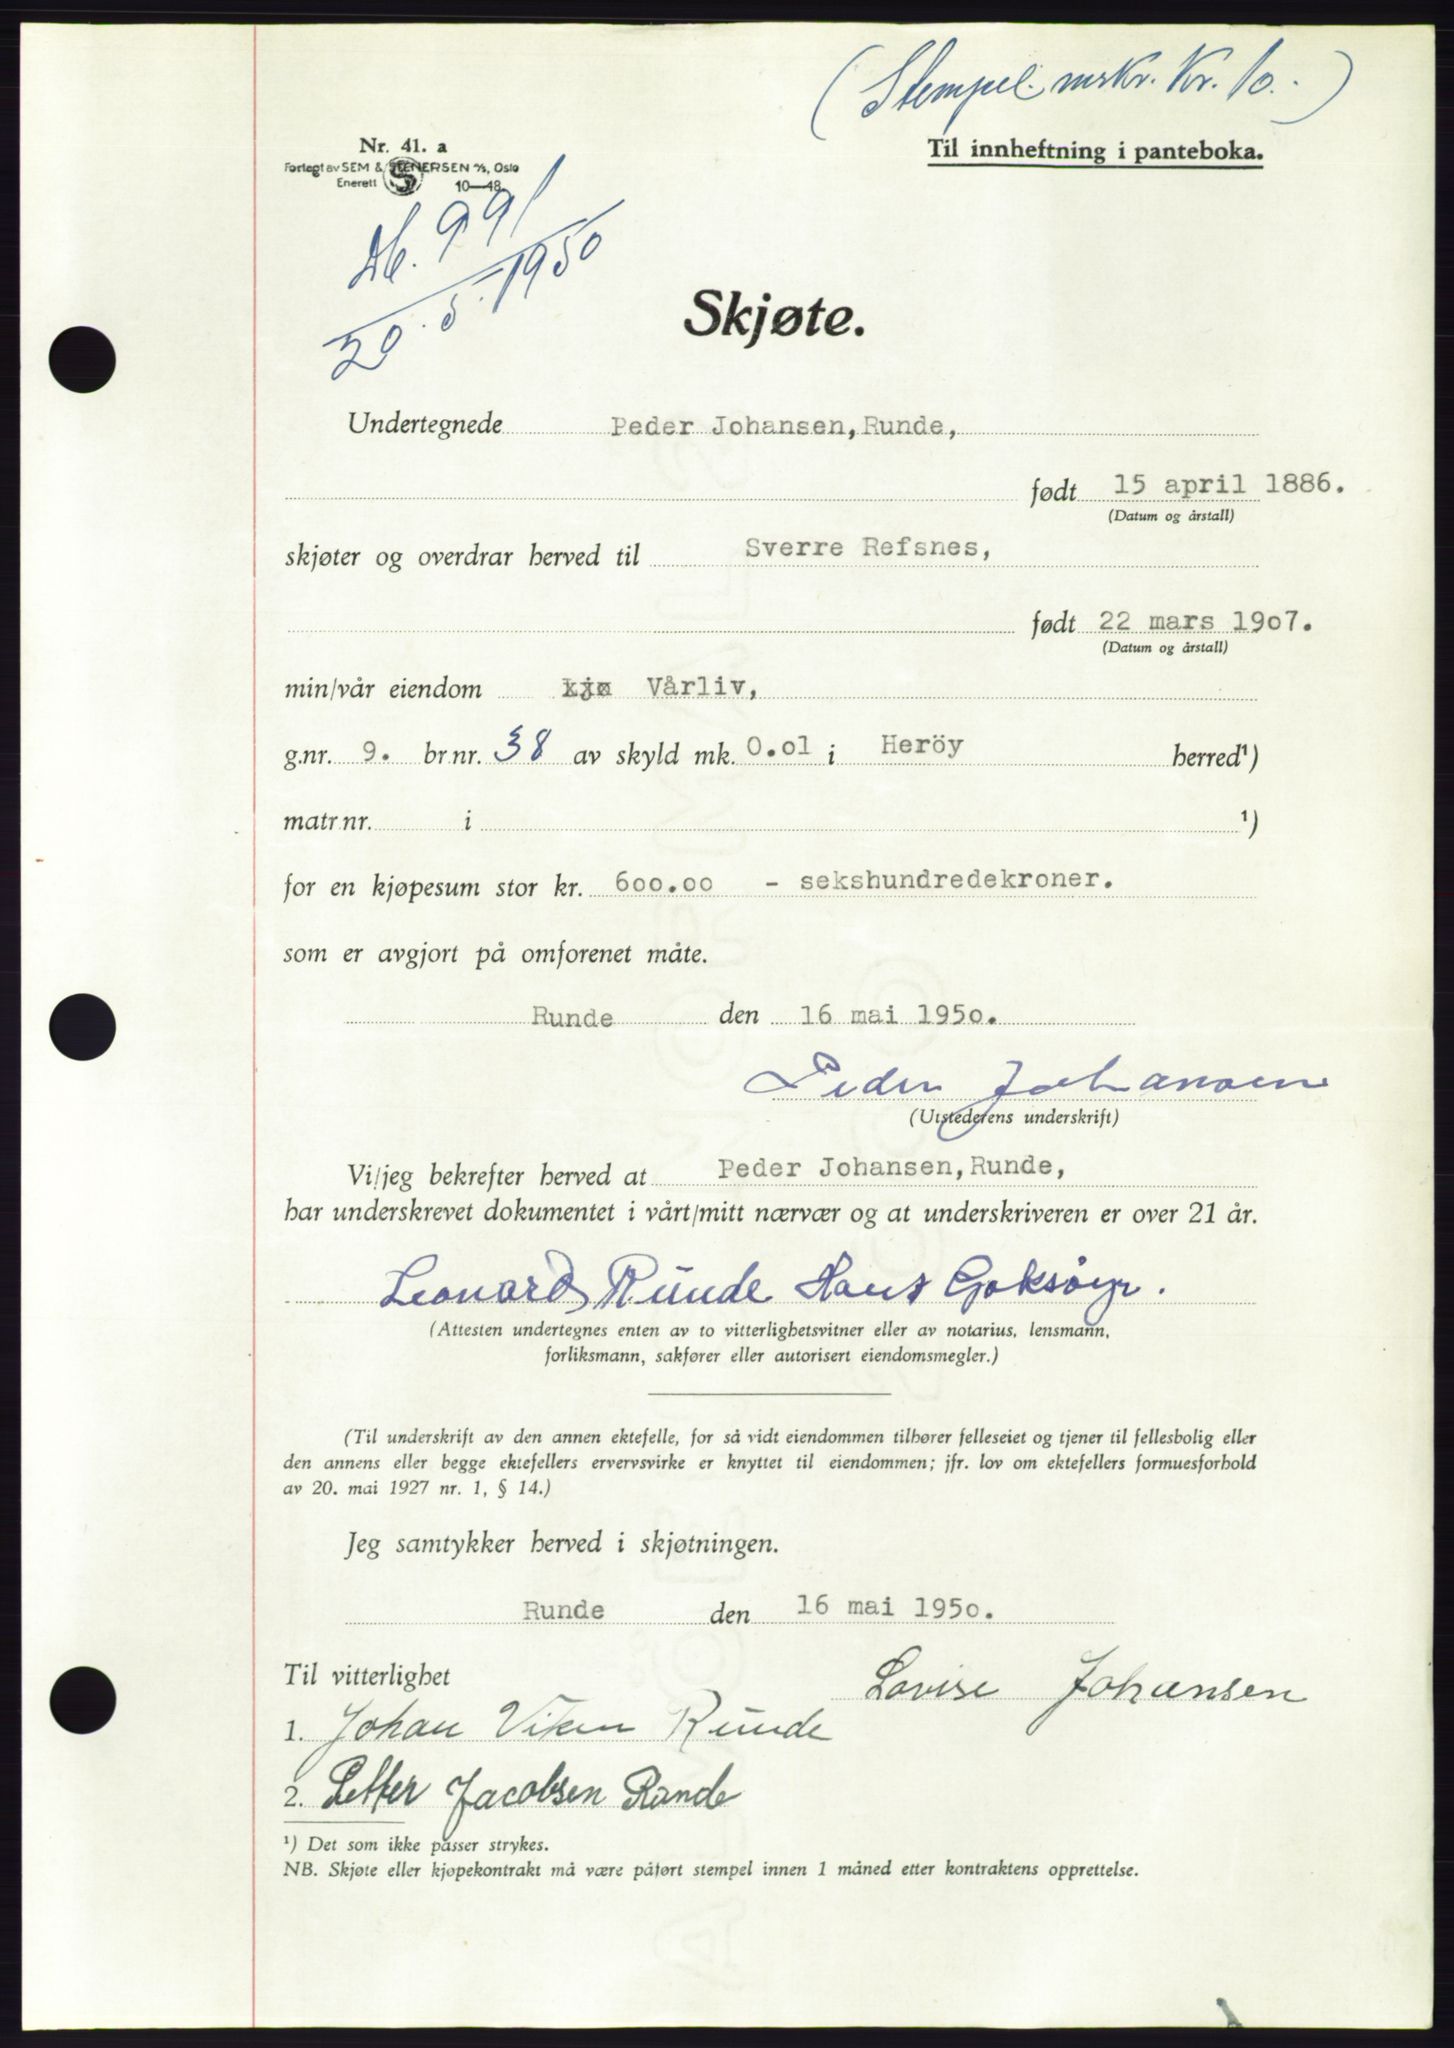 (Stempel.mrkr. Kr. 10.-)
Nr. 41. a
Til innheftning i panteboka.
Forlegt av SEM & STENERSEN A/S, Oslo
Enerett S 10—48.
Db. 991
20.5.1950
Skjøte.
Undertegnede Peder Johansen, Runde,
født 15 april 1886.
(Datum og årstall)
skjøter og overdrar herved til Sverre Refsnes,
født 22 mars 1907.
(Datum og årstall)
min/vår eiendom Vårliv,
g.nr. 9. br.nr. 38 av skyld mk. 0.01 i Heröy herred¹)
matr.nr. i ¹)
for en kjøpesum stor kr. 600.00 - sekshundredekroner.
som er avgjort på omforenet måte.
Runde den 16 mai 1950.
Peder Johansen
(Utstederens underskrift)
Vi/jeg bekrefter herved at Peder Johansen, Runde,
har underskrevet dokumentet i vårt/mitt nærvær og at underskriveren er over 21 år.
Leonard Runde Hans Goksöyr.
(Attesten undertegnes enten av to vitterlighetsvitner eller av notarius, lensmann,
forliksmann, sakfører eller autorisert eiendomsmegler.)
(Til underskrift av den annen ektefelle, for så vidt eiendommen tilhører felleseiet og tjener til fellesbolig eller
den annens eller begge ektefellers ervervsvirke er knyttet til eiendommen; jfr. lov om ektefellers formuesforhold
av 20. mai 1927 nr. 1, § 14.)
Jeg samtykker herved i skjøtningen.
Runde den 16 mai 1950.
Til vitterlighet
Lovise Johansen
1. Johan Viken Runde
2. Petter Jacobsen Runde
¹) Det som ikke passer strykes.
NB. Skjøte eller kjøpekontrakt må være påført stempel innen 1 måned etter kontraktens opprettelse.